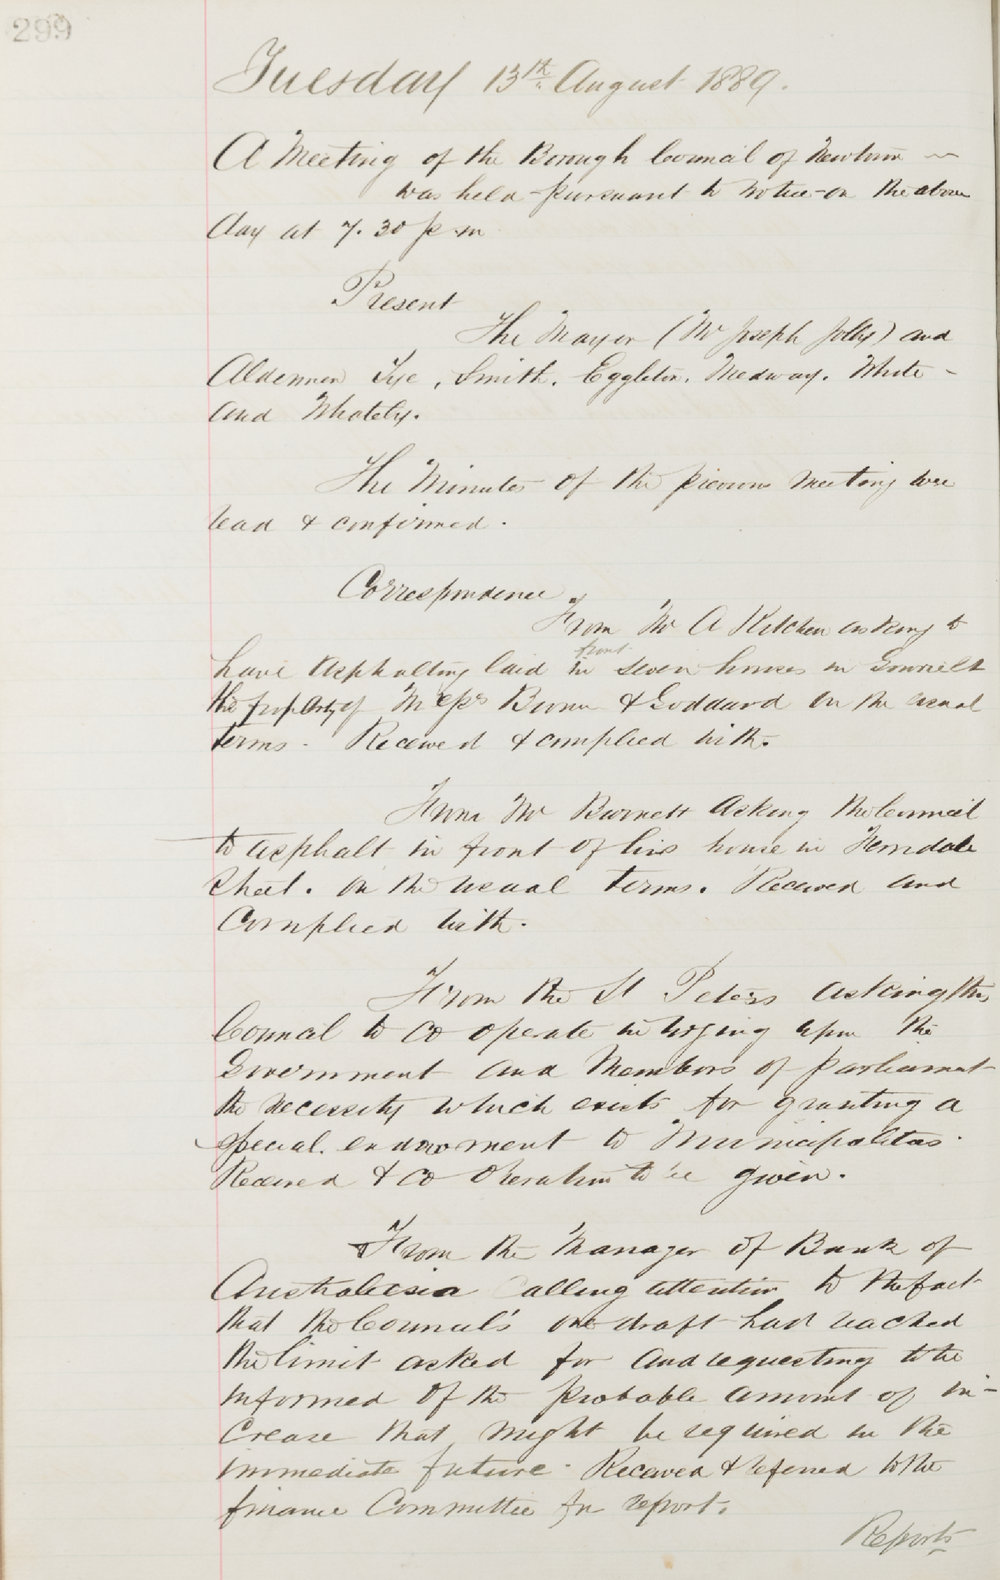 299
Tuesday 13th August 1889.
A Meeting of the Borough Council of Newtown
was held pursuant to notice on the above
day at 7.30 p.m
Present
The Mayor (Mr Joseph Jolly) and
Aldermen Tye, Smith, Eggleton, Medway, White -
and Whately.
The Minutes of the previous meeting were
read & confirmed.
Correspondence
From Mr A Kitchen asking to
front
have Asphalting laid in seven houses in
the property of Messrs & Goddard on the usual
terms - Received & complied with.
From Mr Burnett Asking the Council
to asphalt in front of his house in Ferndale
Street. on the usual terms. Received and
Complied with.
From the St Peters asking the
Council to co operate in urging upon the
Government and Members of parliament
the necessity which exists for granting a
special endowment to Municipalities.
Received & co operation to be given.
From the Manager of Bank of
Australasia Calling attention to the fact
that the Council's over draft had reached
the limit asked for and requesting to be
informed of the probable amount of in-
crease that might be required in the
immediate future. Received & referred to the
finance Committee for report.
Reports